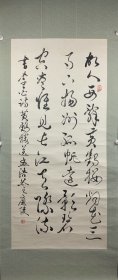 故人西辭黃鶴樓煙花三
月下揚州孤帆遠影碧
空盡唯見長江天際流
李太白詩黃鶴樓送孟浩然之廣陵